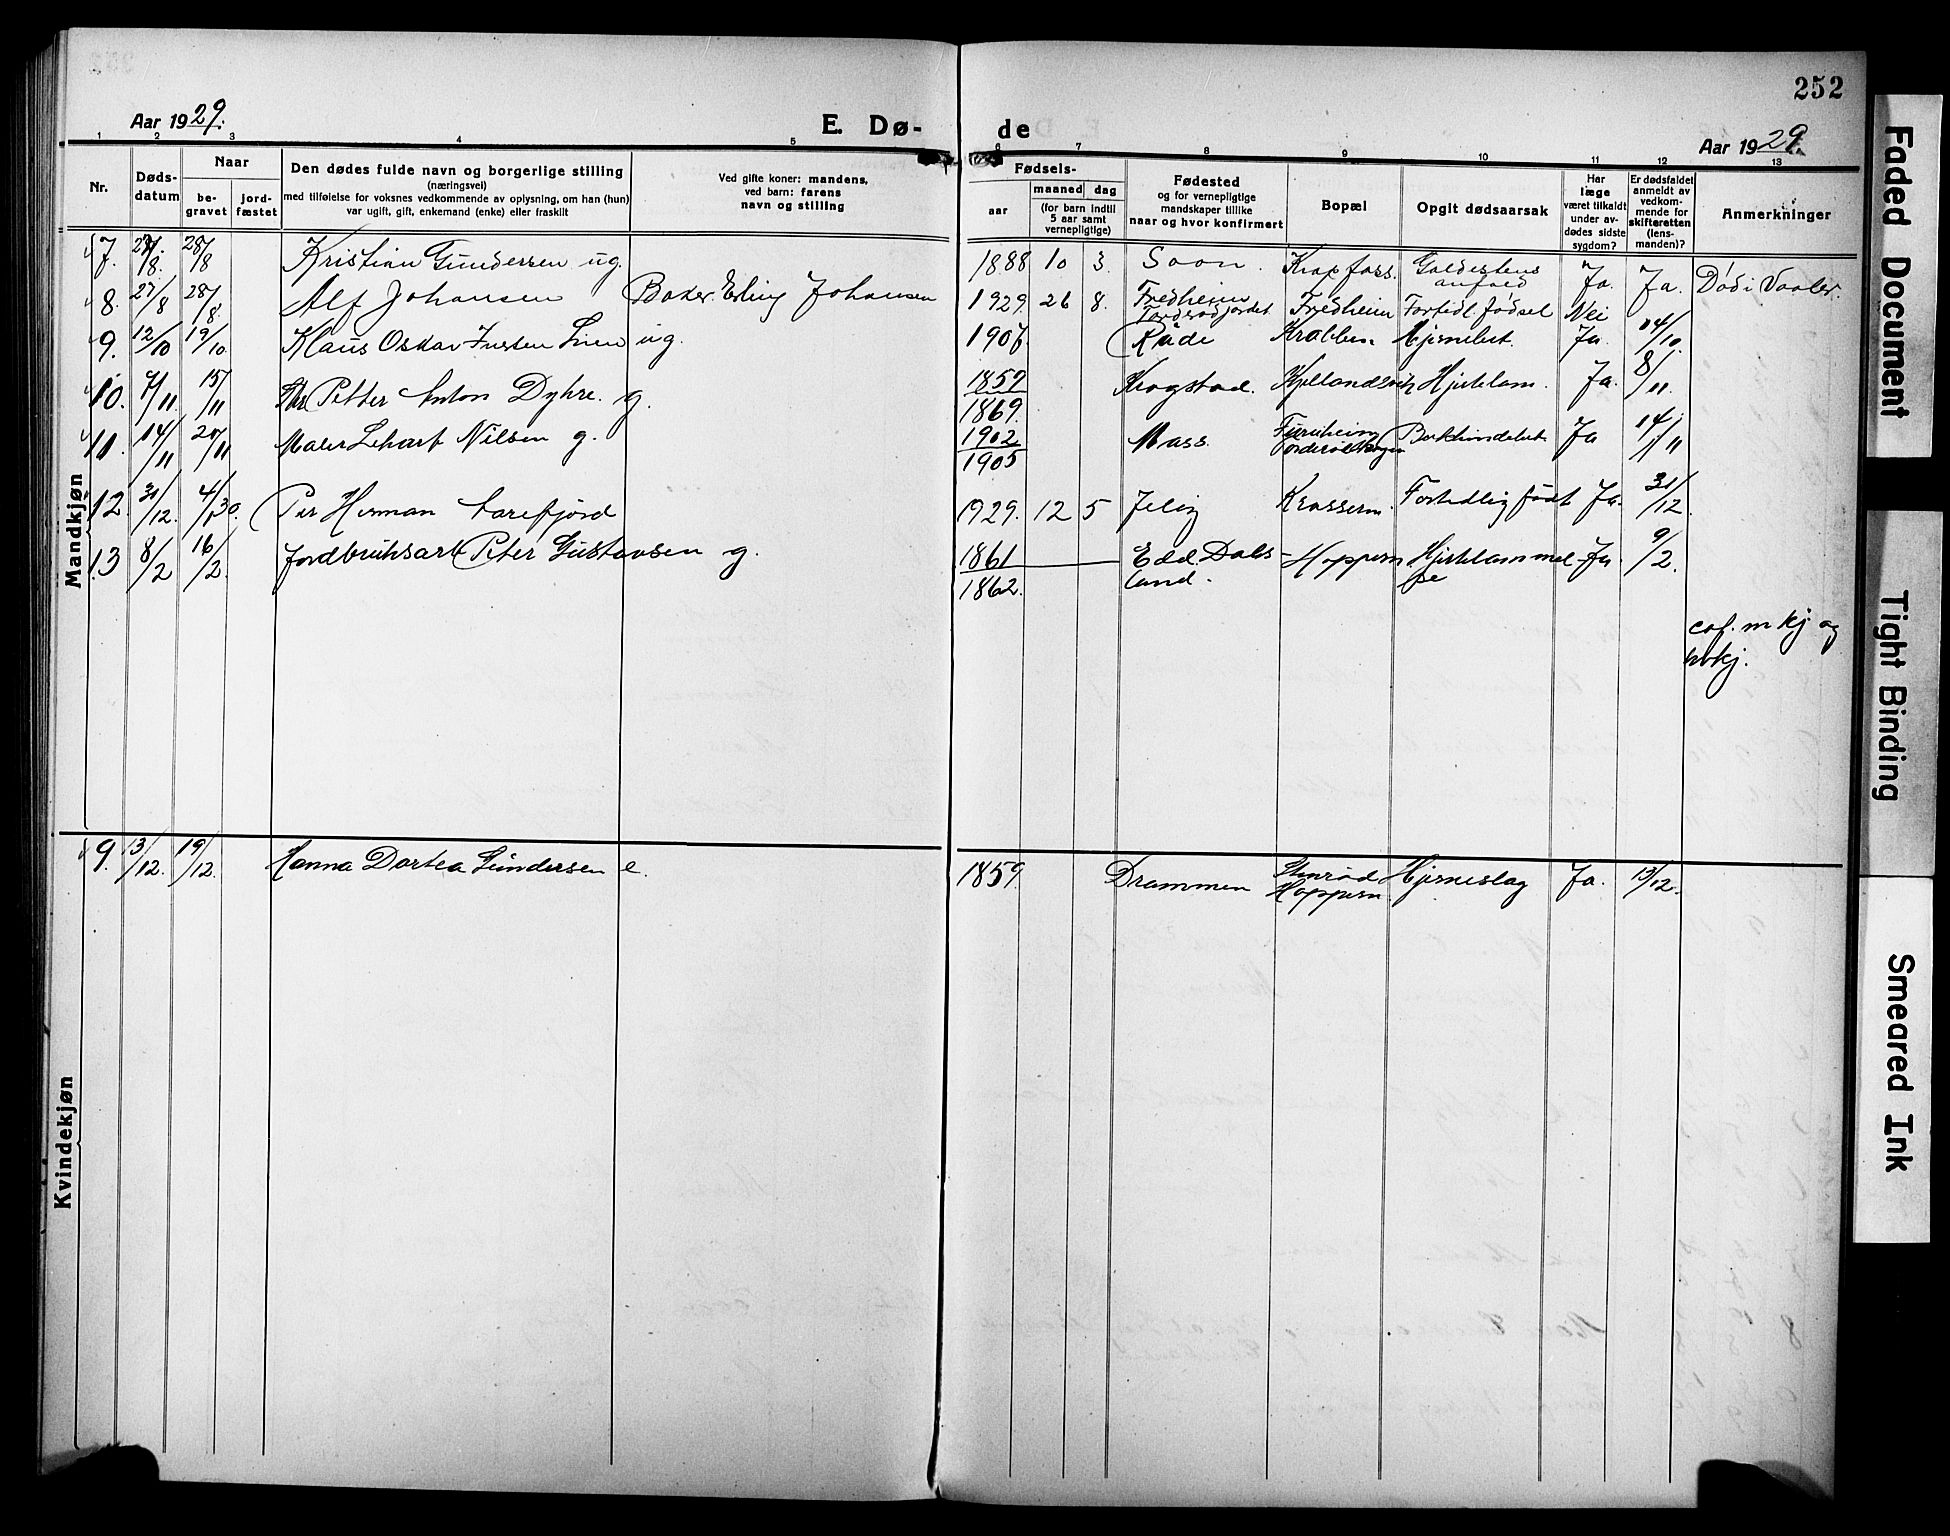 252
Aar 1929.
E. Dø-
de
Aar 1929.
1 2 3 4 5 6 7 8 9 10 11 12 13
Nr.
Døds-
datum
Naar
be-
gravet
jord-
fæstet
Den dødes fulde navn og borgerlige stilling
(næringsvei)
med tilføielse for voksnes vedkommende av oplysning, om han (hun)
var ugift, gift, enkemand (enke) eller fraskilt
Ved gifte koner: mandens,
ved barn: farens
navn og stilling
Fødsels-
aar
maaned dag
(for barn indtil
5 aar samt
vernepligtige)
Fødested
og for vernepligtige
mandskaper tillike
naar og hvor konfirmert
Bopæl
Opgit dødsaarsak
Har
læge
været tilkaldt
under av-
dødes sidste
sygdom?
Er dødsfaldet
anmeldt av
vedkom-
mende for
skifteretten
(lens-
manden)?
Anmerkninger
Mandkjøn
7. 28/8 Kristian Gundersen ug. 1888 10 3. Soon. Krapfoss. Galdestens
anfald Ja. Ja. Død i Vaaler.
8. 27/8 28/8. Alf Johansen Baker Erling Johansen 1929. 26 8. Fredheim
Fredheim Fortidl. fødsel Nei
9. 12/10 19/10. Klaus Oskar Lien ug. 1907. Råde Krabben Hjernebet. Ja. 14/10.
10. 7/11. 15/11 Petter Anton Dyhre. g. 1859
1869. Krogstad. Hjertelam. Ja. 8/11.
11. 14/11 20/11 Maler Lehart Nilsen g. 1902
1905 Moss. Furuheim Ja 14/11
12. 31/12. 4/1 30. Per Herman Larefjord 1929. 12 5 Jeløy Krosser n. Fortidlig født Ja. 31/12.
13 8/2 16/2. Jordbruksarb. Peter Gustavsen g. 1861
1862. Edd. Dals-
land. Hoppern Hjertelammel
se Ja. 9/2.
caf. m kj og
kvkj.
Kvindekjøn
9. 13/12. 19/12. Hanna Dortea Gundersen e. 1859. Drammen Stenrød
Hoppern. Hjerneslag Ja. 13/12.
Faded Document
Tight Binding
Smeared Ink